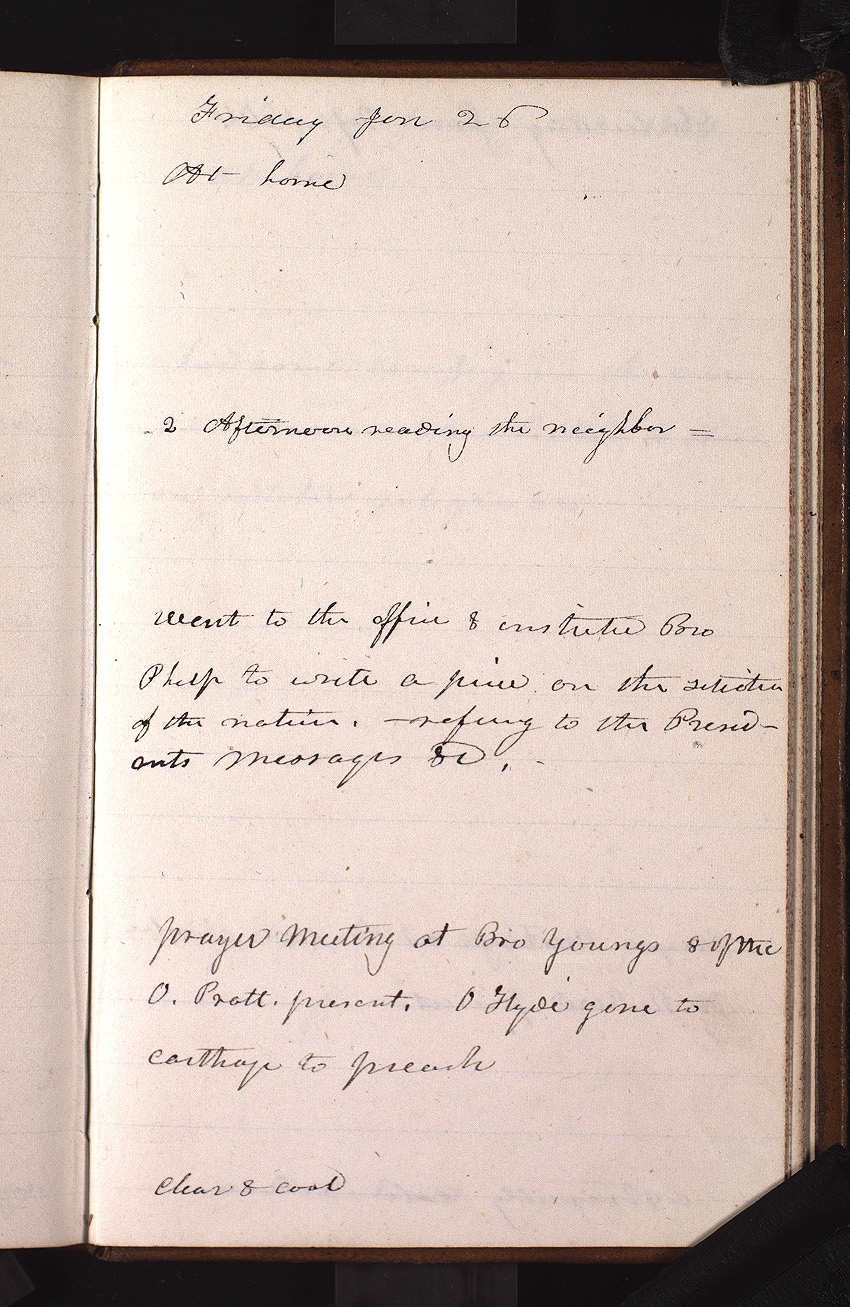 Friday Jan 26
At home
2 Afternoon reading the neighbor =
went to the office & instruted Bro
Phelp to write a piece on the situatin
of the nation. - refering to the Presid-
ents messages &c. -
prayer meeting at Bro Youngs 8 of the
O. Pratt. present. O Hyde gone to
carthage to preach
clear & cool